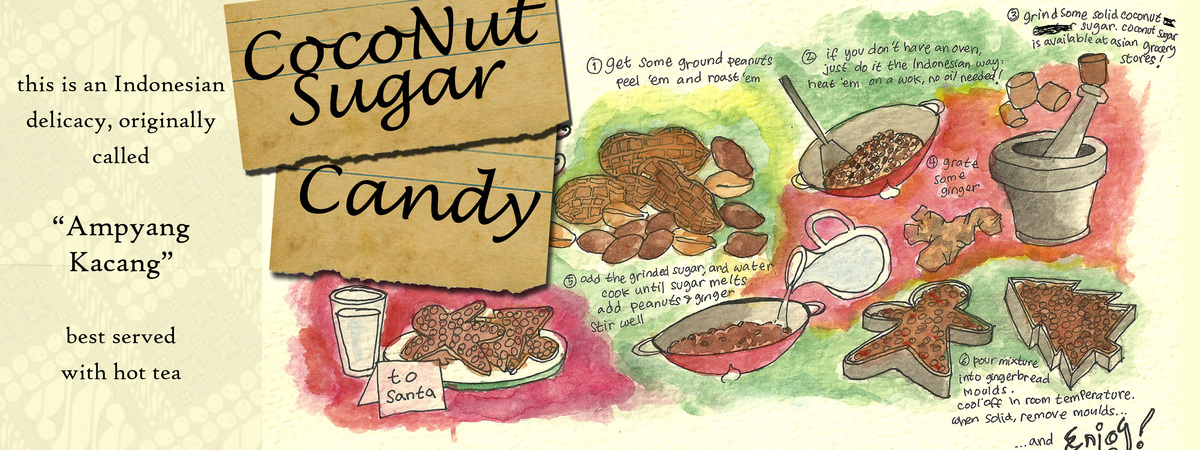 this is an Indonesian
delicacy, originally
called
“Ampyang
Kacang”
best served
with hot tea
CocoNut
Sugar
Candy
① get some ground peanuts
peel 'em and roast 'em
② if you don't have an oven,
just do it the Indonesian way:
heat 'em on a wok, no oil needed!
③ grind some solid coconut
sugar. coconut sugar
is available at asian grocery
stores!
④ grate
some
ginger
⑤ add the grinded sugar, and water
cook until sugar melts.
add peanuts & ginger
stir well
⑥ pour mixture
into gingerbread
moulds.
cool off in room temperature.
when solid, remove moulds...
...and Enjoy!
to
Santa